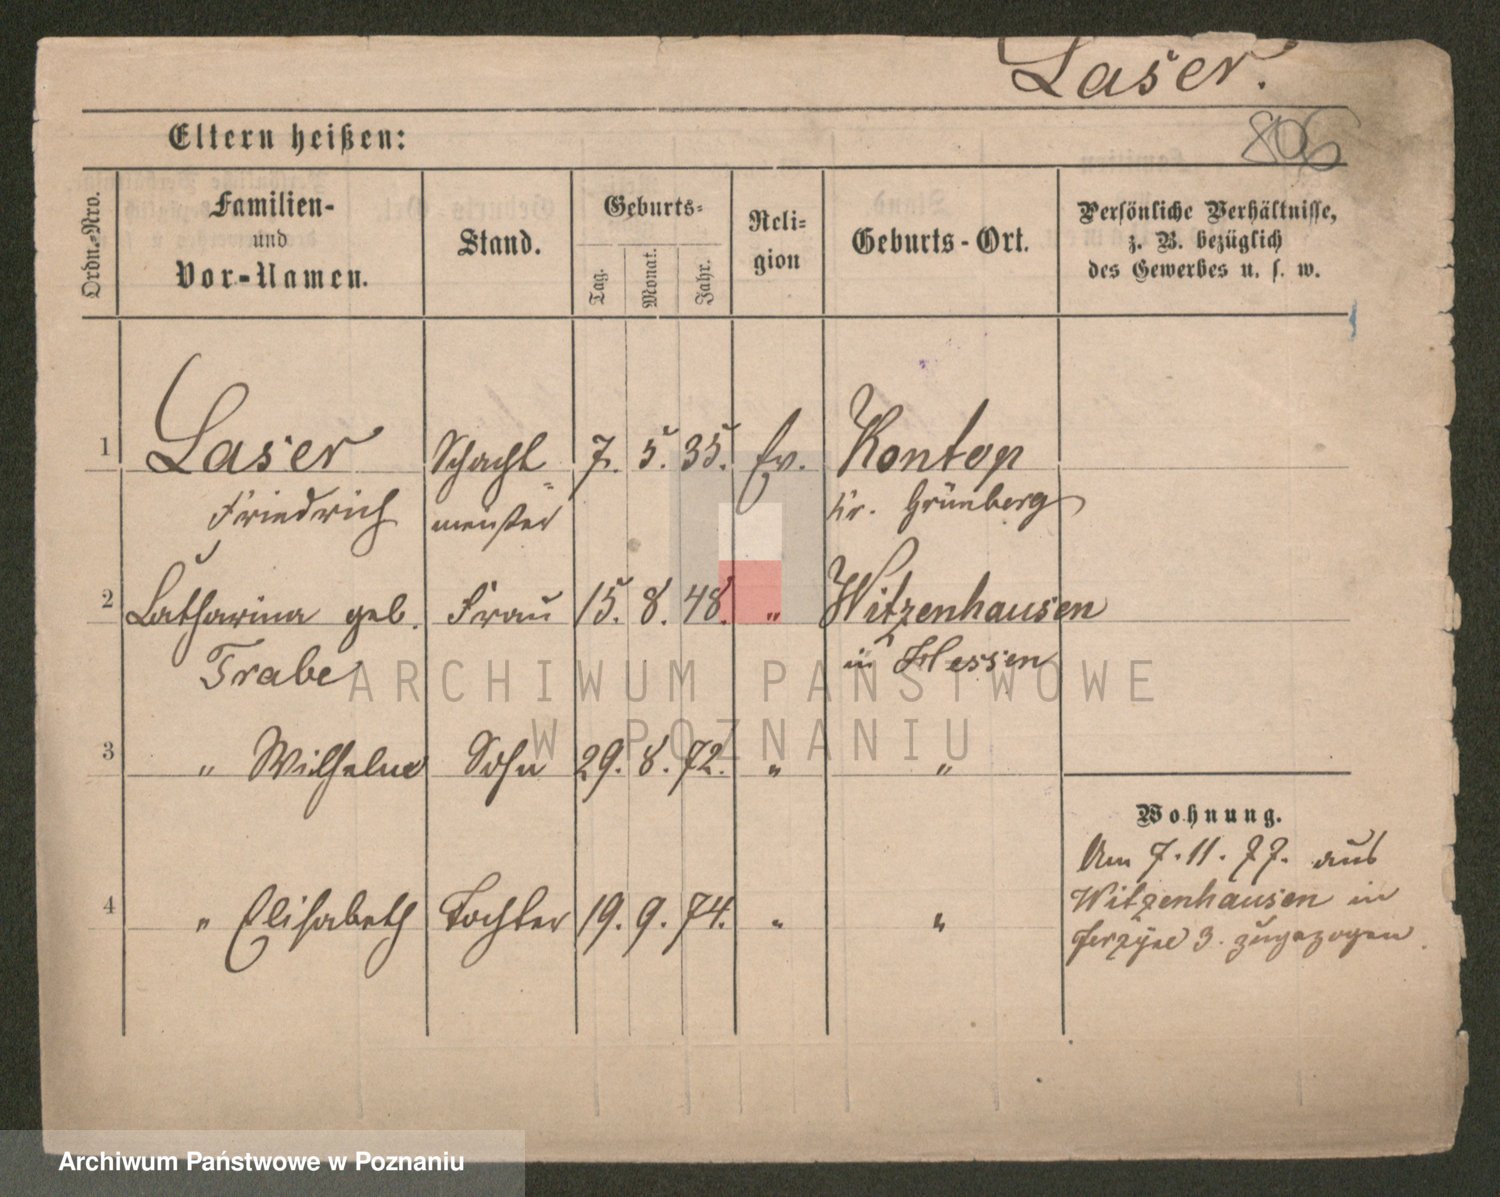 Laser.
806
Eltern heißen:
Ordn.-Nro.
Familien-
und
Vor-Namen.
Stand.
Geburts-
Tag.
Monat.
Jahr.
Reli-
gion
Geburts-Ort.
Persönliche Verhältnisse,
z. B. bezüglich
des Gewerbes u. s. w.
1 Laser Schacht 7. 5. 35. Ev. Kontop
Friedrich meister Kr. Grünberg
2 Catharina geb. Frau 15. 8. 48. " Witzenhausen
Trabe in Hessen
3 " Wilhelm Sohn 29. 8. 72. " "
Wohnung.
Am 7.11.77. aus
Witzenhausen in
3. zugezogen
4 " Elisabeth Tochter 19. 9. 74. " "
ARCHIWUM PAŃSTWOWE
W POZNANIU
Archiwum Państwowe w Poznaniu